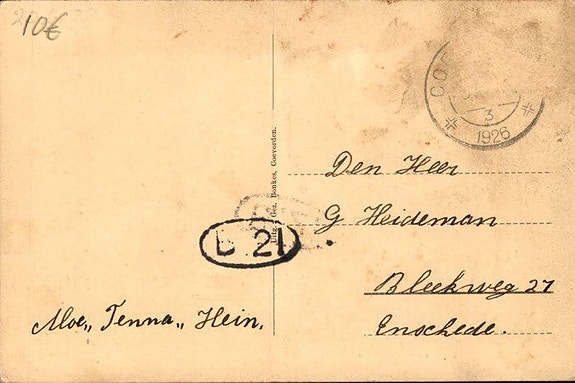 10€
COE
3
1926
Uitg. Gez. Bonkes, Coevorden.
Den Heer
G Heideman
Bleekweg 27
Enschede.
D 21
Moe,, Tenna,, Hein.